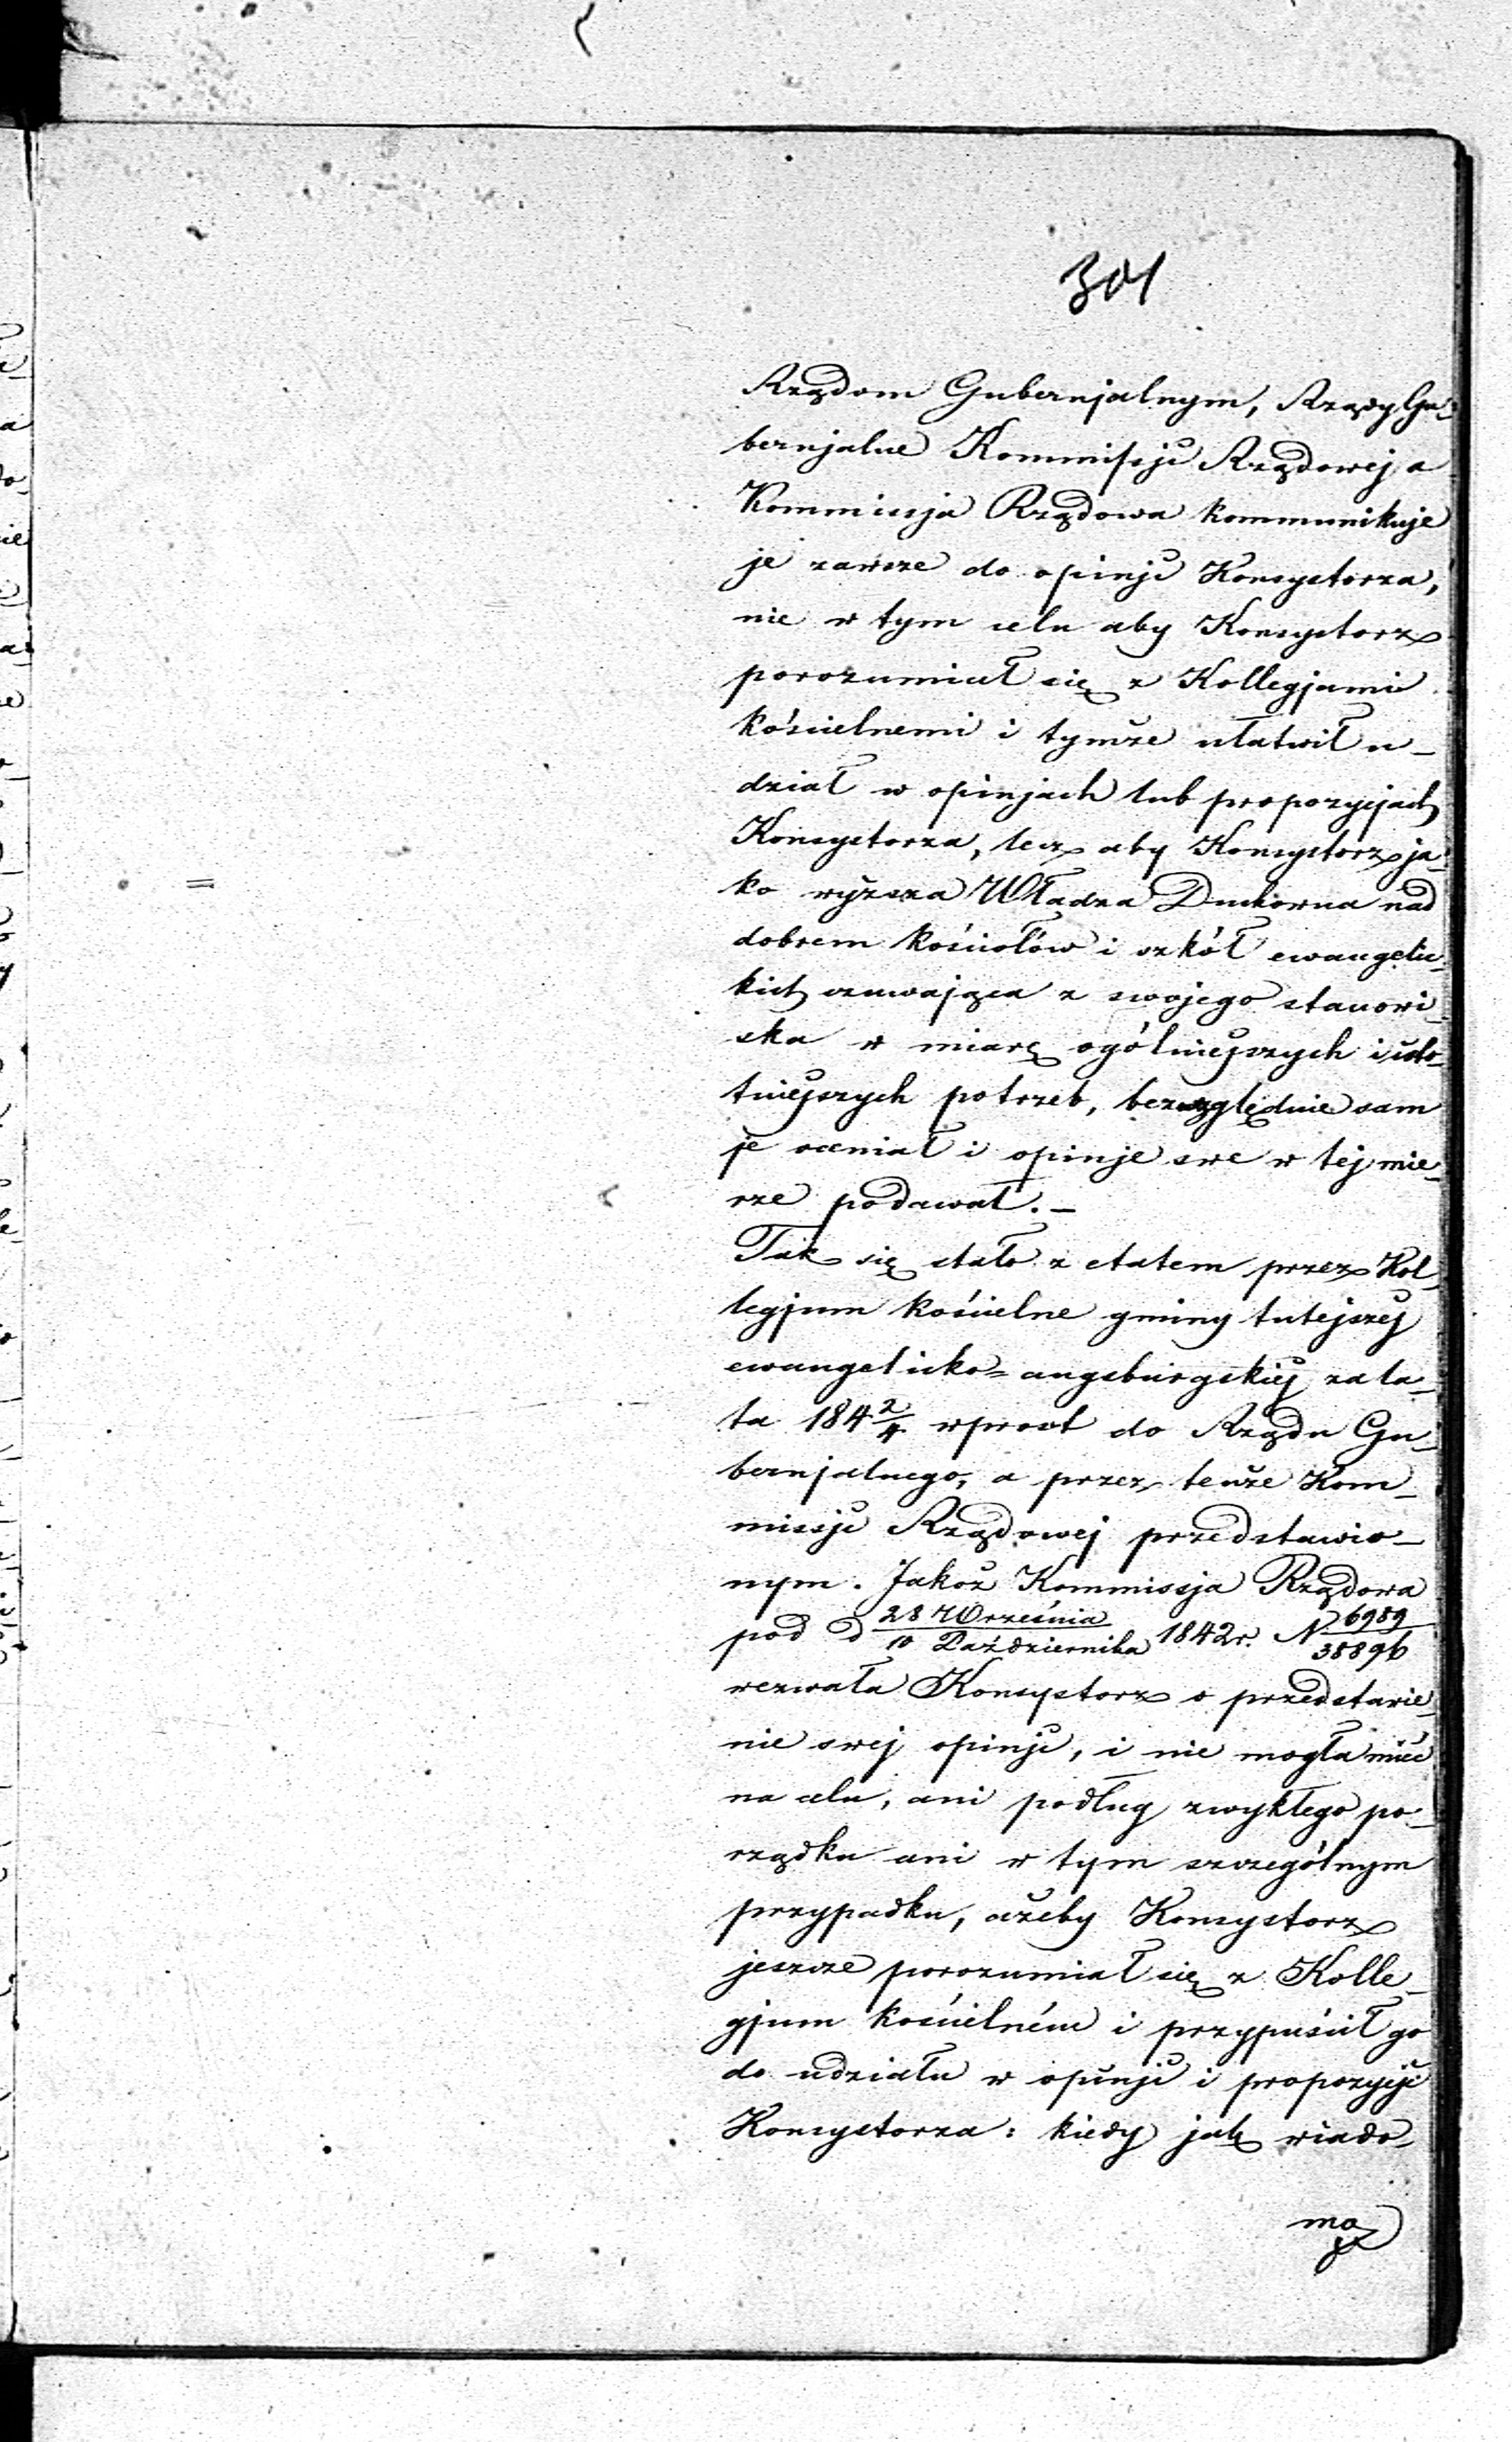 301
Rządom Gubernjalnym, Rządy Gu-
bernjalne Kommissji Rządowej a
Kommissja Rządowa kommunikuje
je zawsze do opinji Konsystorza,
nie w tym celu aby Konsystorz
porozumiał się z Kollegjami
kościelnemi i tymże ułatwił u-
dział w opinjach lub propozycjach
Konsystorza, lecz aby Konsystorz ja-
ko wyższa Władza Duchowna nad
dobrem kościołów i szkół ewangelic-
kich czuwająca z swojego stanowi-
ska w miarę ogólniejszych i isto-
tniejszych potrzeb, bezwzględnie sam
je oceniał i opinje swe w tej mie-
rze podawał. –
Tak się stało z etatem przez Kol-
legjum kościelne gminy tutejszej
ewangelicko-augsburgskiej za la-
ta 184 2/4 wprost do Rządu Gu-
bernjalnego, a przez tenże Kom-
missji Rządowej przedstawio-
nym. Jakoż Kommissja Rządowa
pod d 28 Września/10 Października 1842 r. N 6989/38896
wezwała Konsystorz o przedstawie-
nie swej opinji, i nie mogła mieć
na celu, ani podług zwykłego po-
rządku ani w tym szczególnym
przypadku, ażeby Konsystorz
jeszcze porozumiał się z Kolle-
gjum kościelném i przypuścił go
do udziału w opinji i propozycji
Konsystorza: kiedy jak wiado-
mo